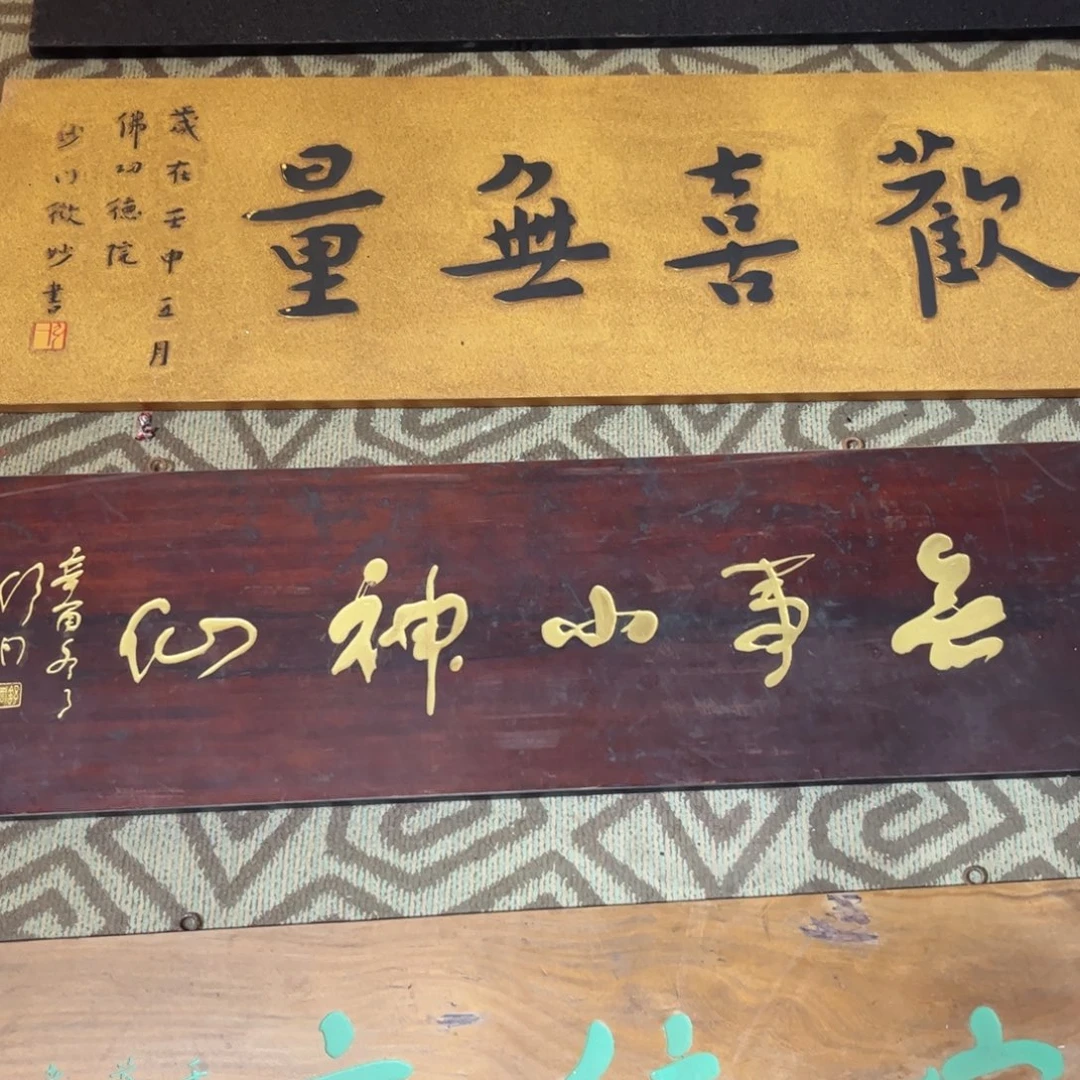 歡喜無量
歲在壬申五月
佛功德院
沙門微妙書
無事小神仙
辛酉冬月